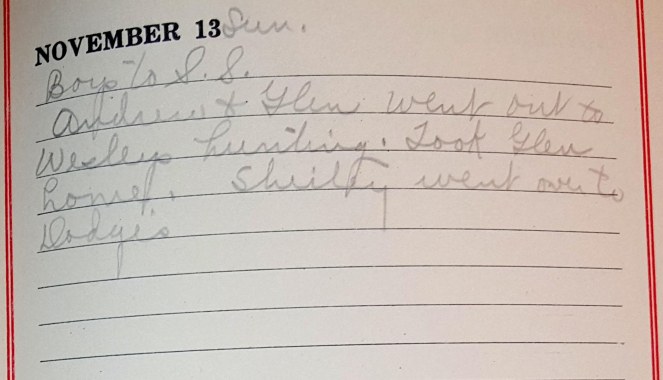 NOVEMBER 13 Sun.
Boys to S. S.
Andrew & Glen went out to
Wesleys hunting. Took Glen
home. went over to
Dodge's